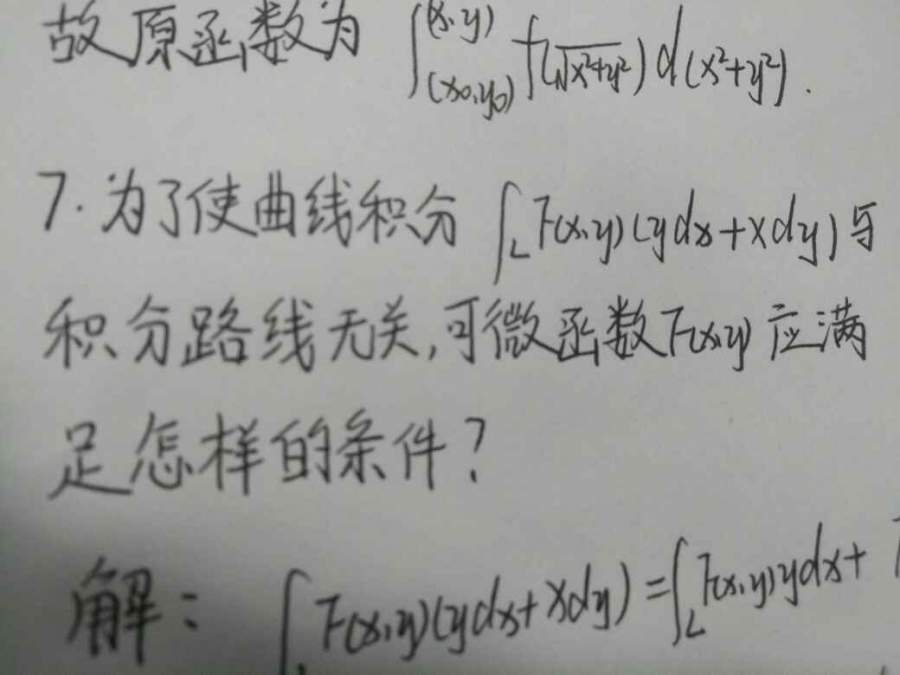 故原函数为 ∫_(x0,y0)^(x,y) f(√x²+y²) d(x²+y²).
7.为了使曲线积分 ∫_L F(x,y)(ydx+xdy)与
积分路线无关,可微函数F(x,y)应满
足怎样的条件?
解: ∫ F(x,y)(ydx+xdy)=∫_L F(x,y)ydx+